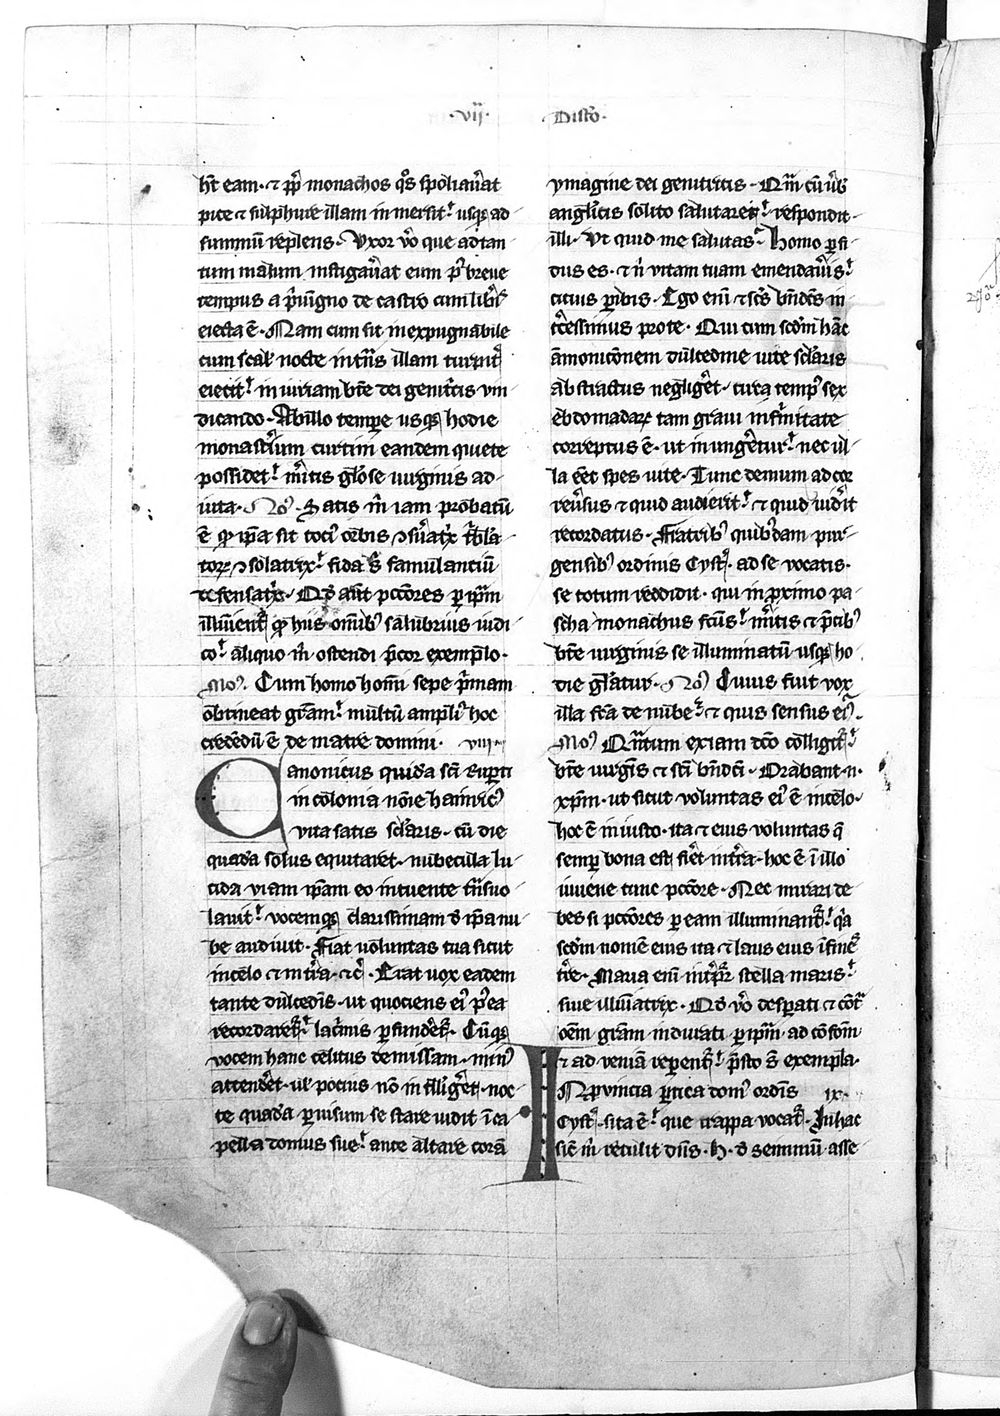 .vij. Disto.
hñt eam. ⁊ ꝓpt monachos q̊s spoliau̾at
pice ⁊ sulphure illam inmersit usqꝫ ad
summū replens. Uxor v̊o que ad tan
tum malum instigau̾at eum pꝰ breue
tempus a p̾uigno de castro cum lib̾is
eiecta ē. Nam cum sit inexpugnabile
cum scal̾ nocte int̾ns illam turpit̾
eiecit in iuriam bt̄e dei genit̾cis uin
dicando. Ab illo temꝑe usqꝫ hodie
monast̾ium curtim eandem quiete
possidet m̾itis gl̾ose uirginis ad
iuta. Nouꝰ. Satis m̄ iam probatū
ē qꝫ ip̄a sit tociꝰ orbis ↄsu̾at̾x t̾bla
toꝝ ↄsolatrix fida s̄ famulantiū
defensat̾x. Qd̾ aūt pcc̄ores ꝑ ip̄m
illūient̾ ꝓ hiis om̄ibꝰ salubrius iudi
co aliquo m̄ ostendi p̄cor exemplo.
Moꝰ. Cum homo hom̄i sepe p̾mam
obtineat gr̄am multū ampliꝰ hoc
credēdū ē de matre domini. viii
Canonicus quidā sc̄i Ruꝑti
in colonia noīe hainricꝰ
vita satis scl̾aris. cū die
quadā solus equitaret. nubecula lu
cida viam ip̄am eo intuente t̾nsuo
lauit vocemqꝫ clarissimam d̾ ip̄a nu
be audiuit. Fiat uoluntas tua sicut
in celo ⁊ in t̾ra. ⁊c̾. Erat uox eadem
tante dulcedīs. ut quociens eiꝰ pꝰea
recordaret̾ lac̾mis ꝑfund̾et̾. Cūqꝫ
vocem hanc celitus demissam. minꝰ
attend̾et. ul̾ pocius nō intellig̾et. noc
te quadā ꝑ uisum se stare uidit ī ca
pella domus sue ante altare corā
ymagine dei genitricis. Qm̄ cū u̾b
anglicis solito salutaret respondit
illi. Ut quid me salutas. homo ꝑfi
dus es. ⁊ n̄ vitam tuam emendau̾is
citius ꝑibis. Ego enī ⁊ sc̄s bn̄dc̄s in
t̾cessimus pro te. Qui cum scd̄m hāc
āmonic̄onem dulcedine uite scl̾aris
abstractus neglig̾et. circa tempꝰ sex
ebdomadaꝝ tam graui infi̾mitate
correptus ē. ut inung̾etur nec ul
la eēt spes uite. Tunc demum ad cor
reu̾sus ⁊ quid audierit ⁊ quid uid̾it
recordatus. Fratribꝰ quibꝰdam pur
gensibꝰ ordinis Cyst̾. ad se vocatis.
se totum reddidit. qui in proximo pa
scha monachus fc̄us m̾itis ⁊ p̄cibꝰ
bt̄e uirginis se illuminatū usqꝫ ho
die gl̾atur. Nouꝰ Cuius fuit vox
illa fc̄a de nube ⁊ quis sensus eiꝰ.
Moꝰ Q̾ntum ex iam dc̄o colligit̾
bt̄e uirgīs ⁊ sc̄i bn̄dc̄i. Orabant n.
xp̄m. ut sicut voluntas eiꝰ ē in celo.
hoc ē in iusto. ita ⁊ eius voluntas q̄
semꝑ bona est fi̾et in t̾ra. hoc ē ī illo
iuuene tunc pcc̄ore. Nec mirari de
bes si pcc̄ores ꝑ eam illuminant̾ q̾a
scd̄m nomē eius ita ⁊ laus eius ī fines
t̾re. Maria enī int̾p̾t̾ stella maris
siue illūiatrix. Qd̾ v̊o despati ⁊ cont̾
oēm gr̄am indurati ꝑ ip̄m ad cōfōm
⁊ ad veniā reperient̾ p̄sto s̄ exempla.
In prouincia ꝑtica domꝰ ordīs ix.
Cyst̾. sita ē que trappa vocat̾. In hac
sic̄ m̄ retulit dn̄s. h. d̾ seminiū asse